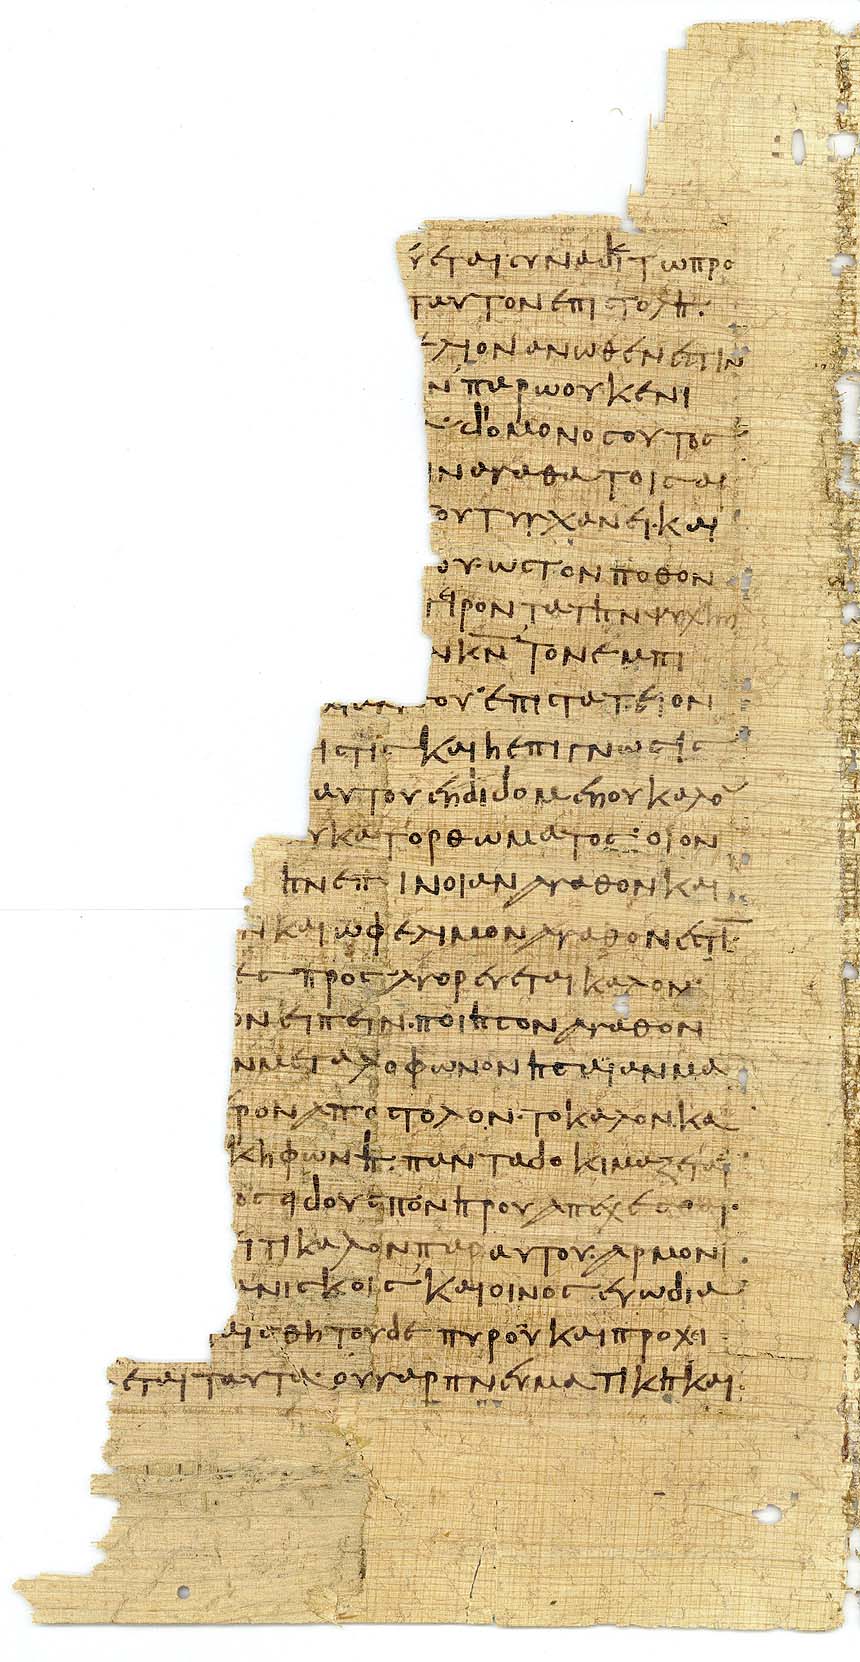 ύεται συναδετω προ
ταυτον επιστολη·
έλιον ανωθεν εστιν
ν παρ ω ουκ ενι
δ ο μονος ουτος
ιν αγαθα τοις αι
ου τυγχανει· και
ου· ως τον ποθον
ρον τα την ψυχην
ν κ̅ν̅ τον εμπι
του επιστατειον
ιστις και η επιγνωσις
αυτου ενδιδομενου καλο
υ κατορθωματος· οιον
ην επινοιαν αγαθον και
ν και ωφελιμον αγαθον εστι·
ες προσαγορευεται καλον·
ον ειπειν· ποιησον αγαθον
ν μεγαλοφωνον ησαιαν μα
ρον αποστολον· το καλον κα
κη φωνη· παντα δοκιμαζεται
ος ειδους πονηρου απεχεσθαι·
τι καλον παρ αυτου· αρμονι
ανισκοις και οινος ευωδια
αισθητου δε πυρου και προχι
εται ταυτα· ου γαρ πνευματικη και